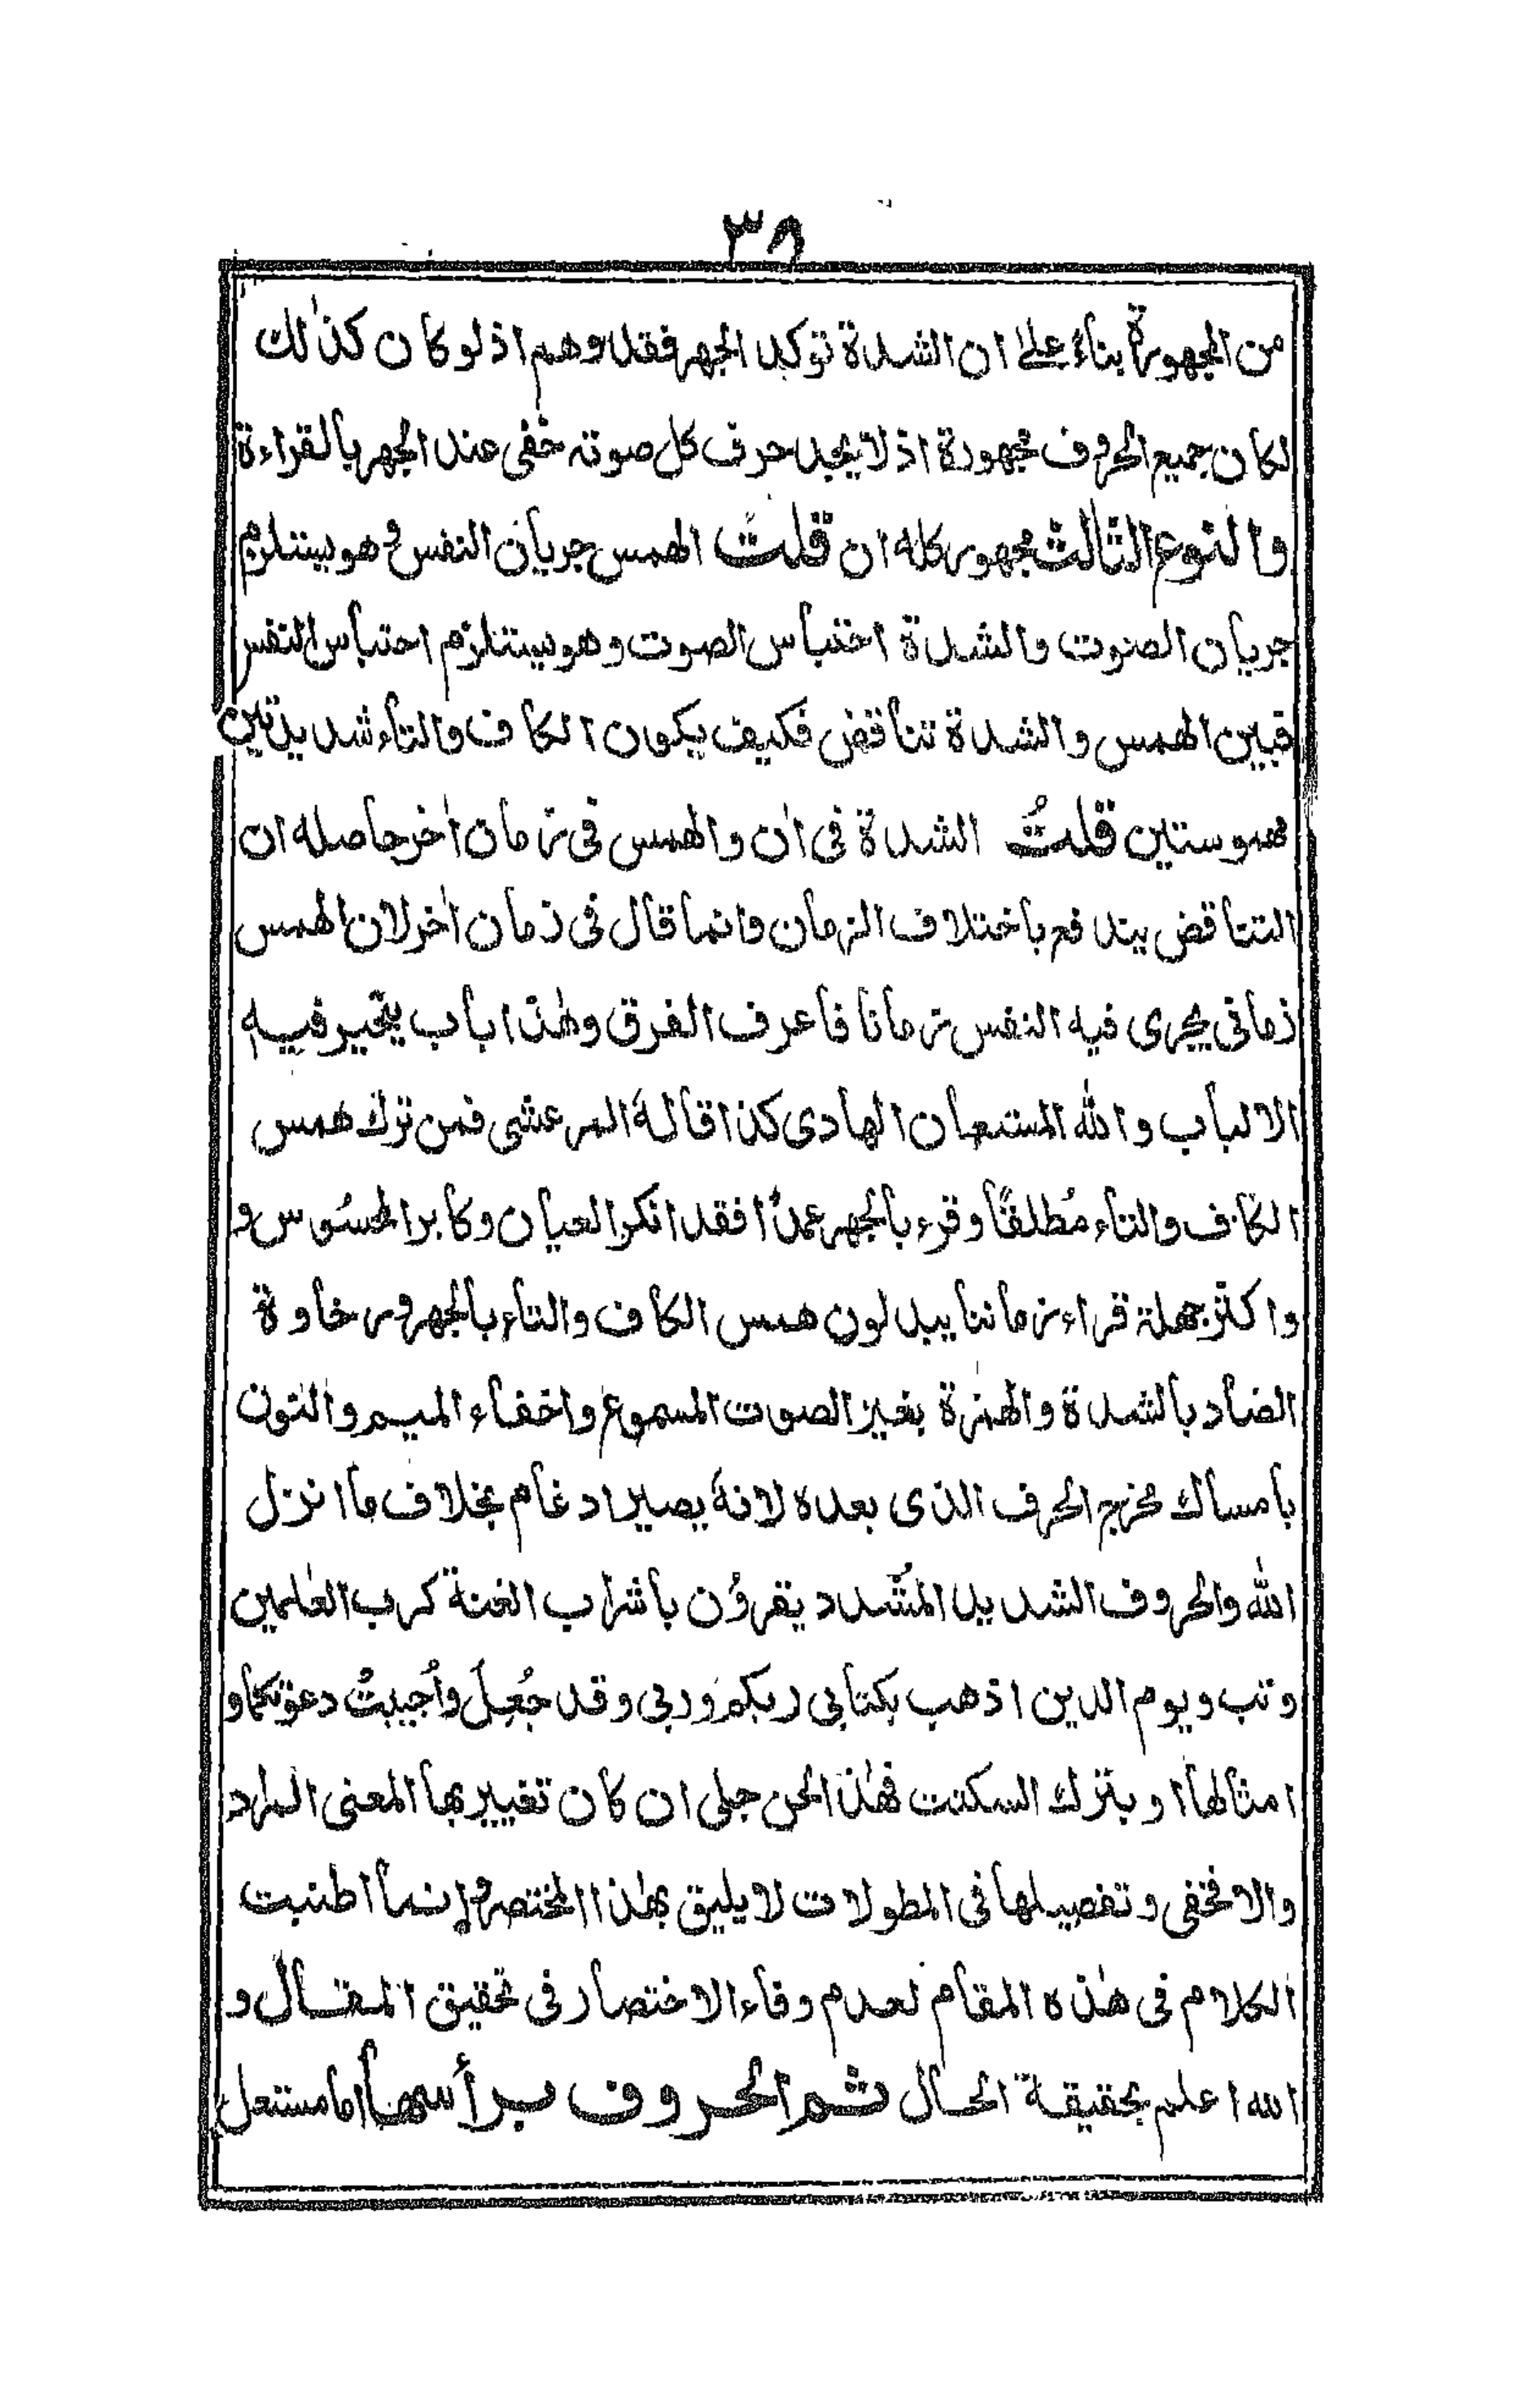 ٣٨
من المجهورة بناءً على ان الشدة توكد الجهر فقد وهم اذ لو كان كذٰلك
لكان جميع الحروف مجهورة اذ لا يجد حرف كل صوته خفى عند الجهر بالقراءة
والنوع الثالث مجهور كله ان قلت الهمس جريان النفس وهو يستلزم
جريان الصوت والشدة احتباس الصوت وهو يستلزم احتباس النفس
فبين الهمس والشدة تناقض فكيف يكون الكاف والتاء شديدتين
مهموستين قلتُ الشدة فى اٰن والهمس فى زمان اٰخر حاصله ان
التناقض يندفع باختلاف الزمان وانما قال فى زمان اٰخر لان الهمس
زمانى يجرى فيه النفس زمانا فاعرف الفرق ولهٰذا باب يتحير فيه
الالباب والله المستعان الهادى كذا قاله المرعشى فمن ترك همس
الكاف والتاء مُطلقًا وقرء بالجهر عمدًا فقد انكر العيان وكابر المحسُوس و
واكثر جهلة قراء زماننا يبدلون همس الكاف والتاء بالجهر ورخاوة
الضاد بالشدة والهمزة بغير الصوت المسموع واخفاء الميم والنون
بامساك مخرج الحرف الذى بعده لانه يصير ادغام بخلاف ما انزل
الله والحروف الشديد المُشدد يقرؤن باشراب الغنة كرب العٰلمين
وتب ويوم الدين اذهب بكتابى ربكم وربى وقد جُعِلَ واُجيبتْ دعوتكما و
امثالها او بترك السكت فهٰذا لحن جلى ان كان تغيير بها المعنى المراد
والا فخفى وتفصيلها فى المطولات لا يليق بهٰذا المختصر وإنما اطنبت
الكلام فى هٰذه المقام لعدم وفاء الاختصار فى تحقيق المقال و
الله اعلم بحقيقة الحال ثم الحروف برأسها اما مستعل